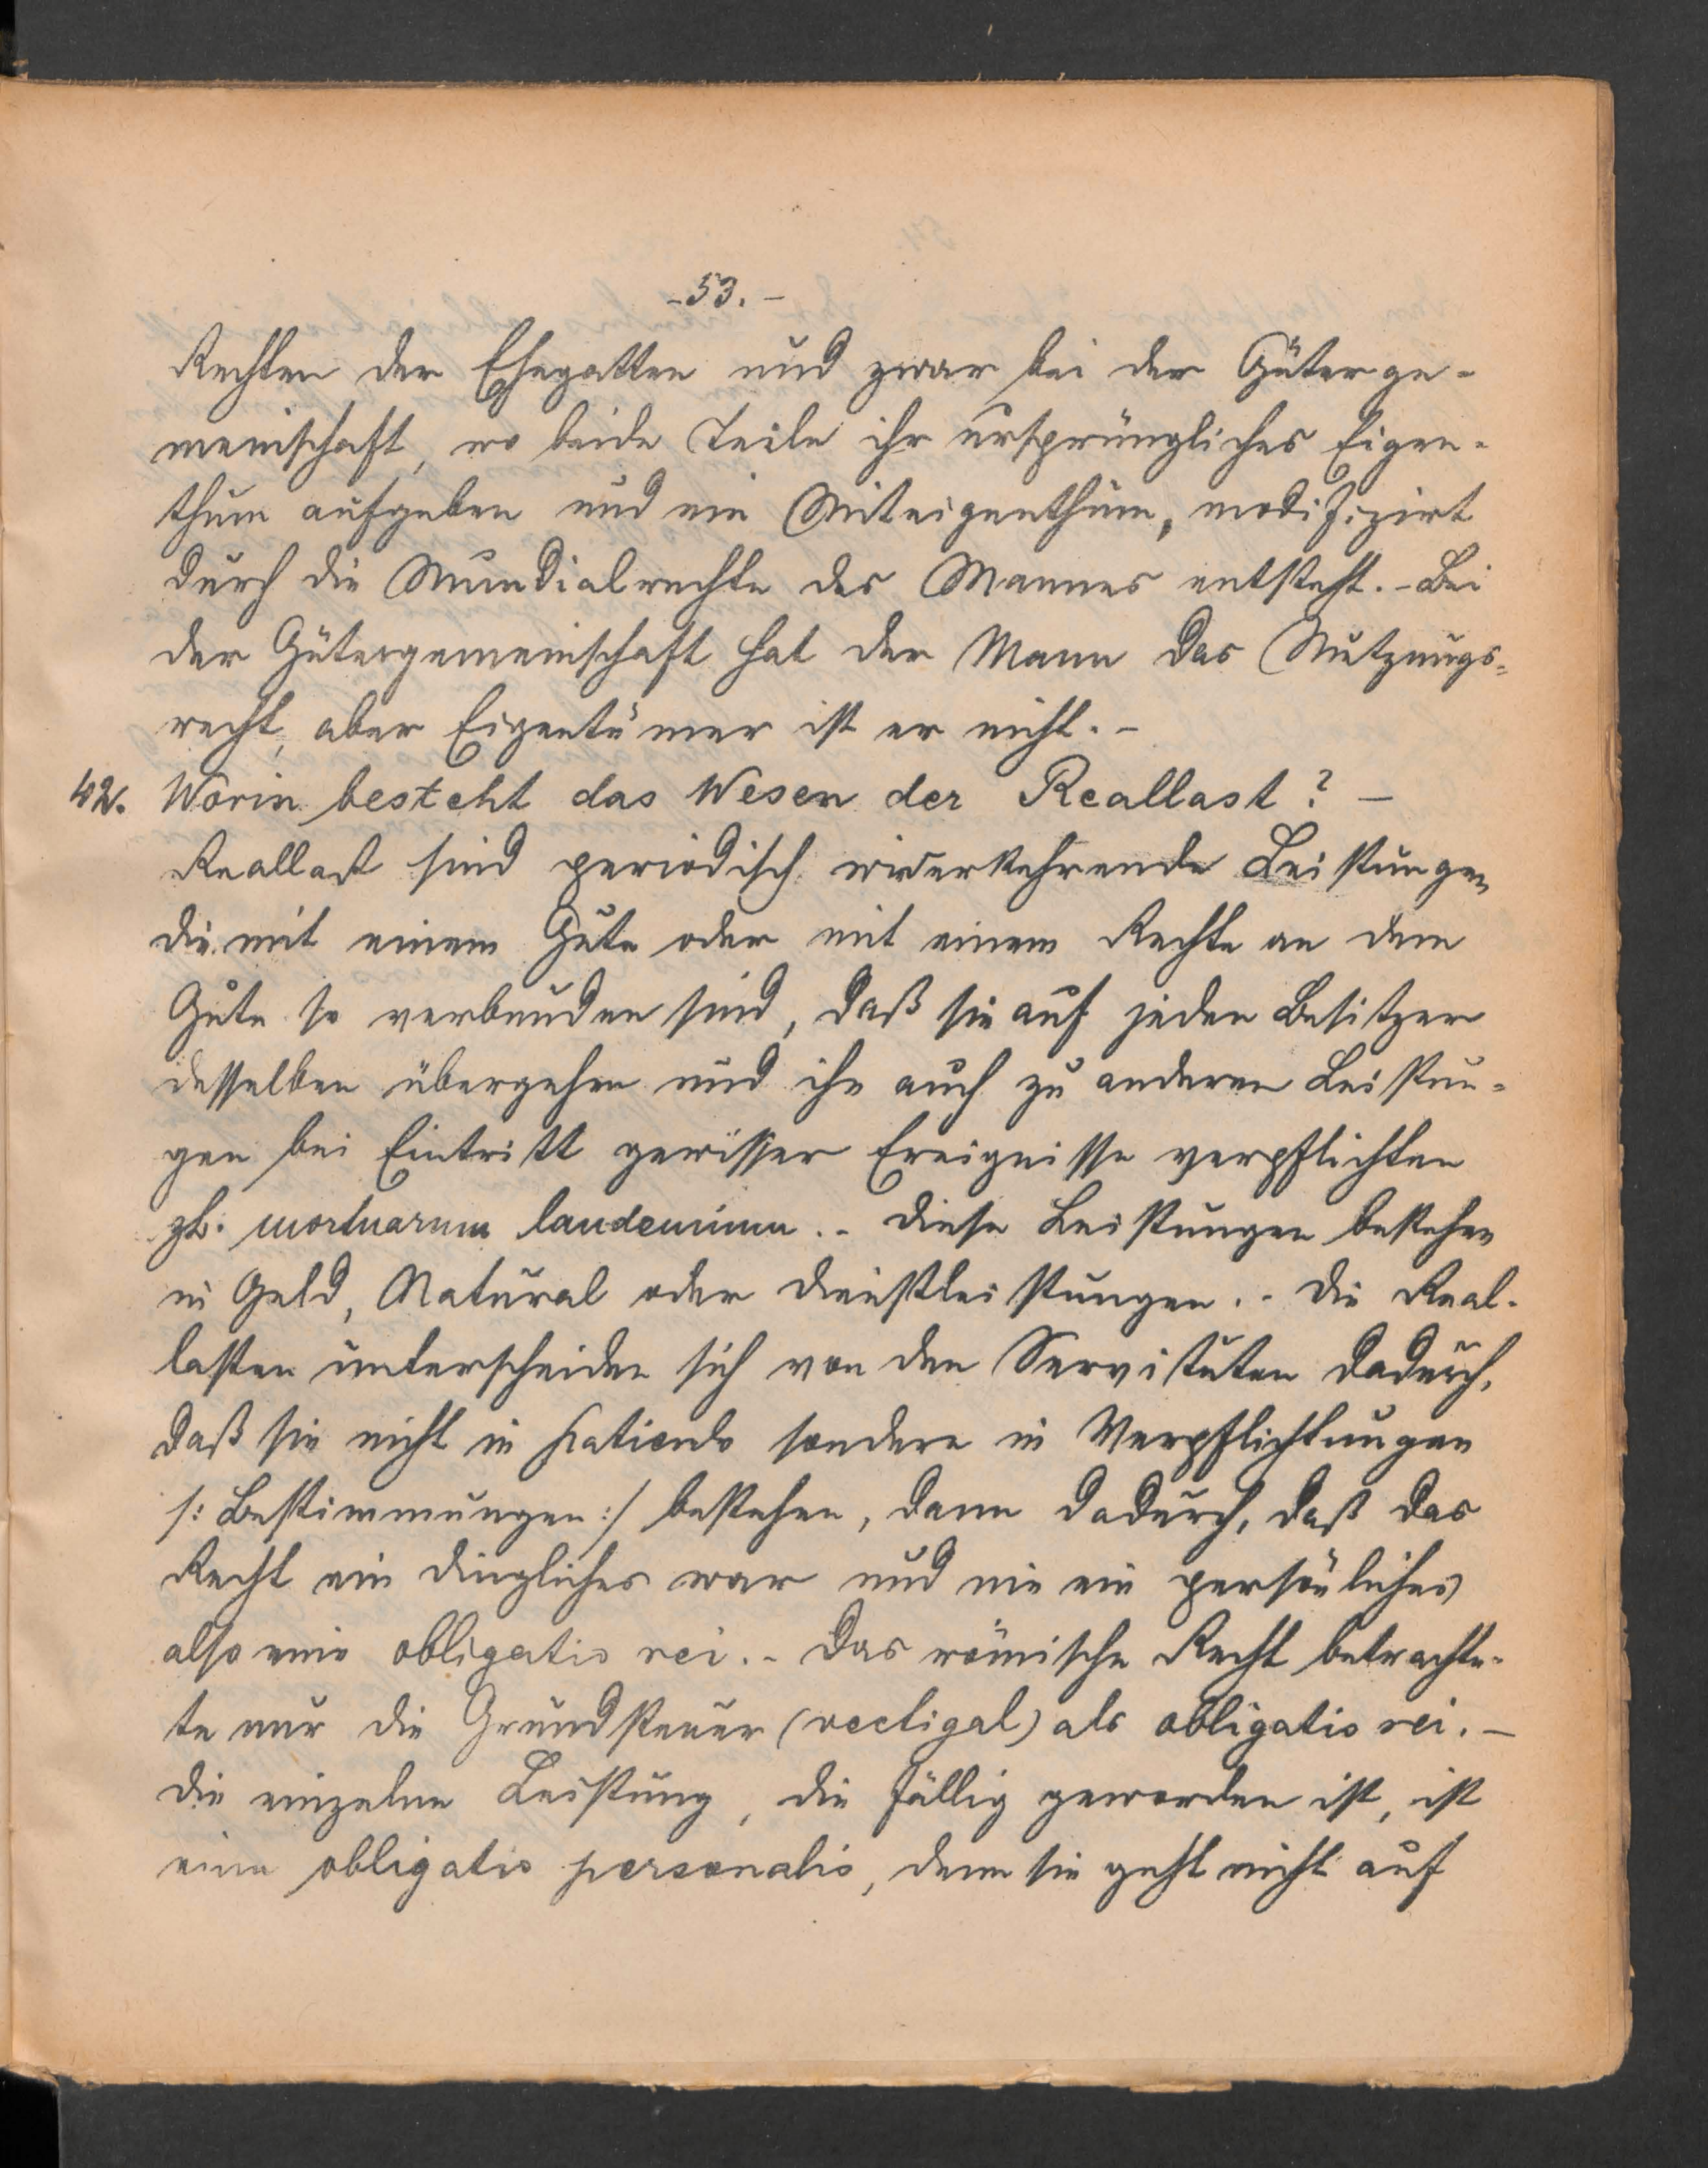 -53.-
Rechten der Ehegatten und zwar bei der Güterge-
meinschaft, wo beide Teile ihr ursprüngliches Eigen-
thum aufgeben und ein Miteigenthum, modifizirt
durch die Mundialrechte des Mannes entsteht. - Bei
der Gütergemeinschaft hat der Mann das Nutzungs-
recht, aber Eigentümer ist er nicht. -
42. Worin besteht das Wesen der Reallast? -
Reallast sind periodisch widerkehrende Leistungen
die mit einem Gute oder mit einem Rechte an dem
Gute so verbunden sind, daß sie auf jeden Besitzer
desselben übergehen und ihn auch zu anderen Leistun-
gen bei Eintritt gewisser Ereignisse verpflichten
zb. mortuarum laudemium. - Diese Leistungen bestehen
in Geld, Natural oder Dienstleistungen. - Die Real-
lasten unterscheiden sich von den Servituten dadurch,
daß sie nicht in patiendo sondern in Verpflichtungen
/: Bestimmungen :/ bestehen, dann dadurch, daß das
Recht ein dingliches war und nie ein persönliches
also eine obligatio rei. - Das römische Recht betrachte-
te nur die Grundsteuer (vectigal) als obligatio rei. -
Die einzelne Leistung, die fällig geworden ist, ist
eine obligatio personalis, denn sie geht nicht auf